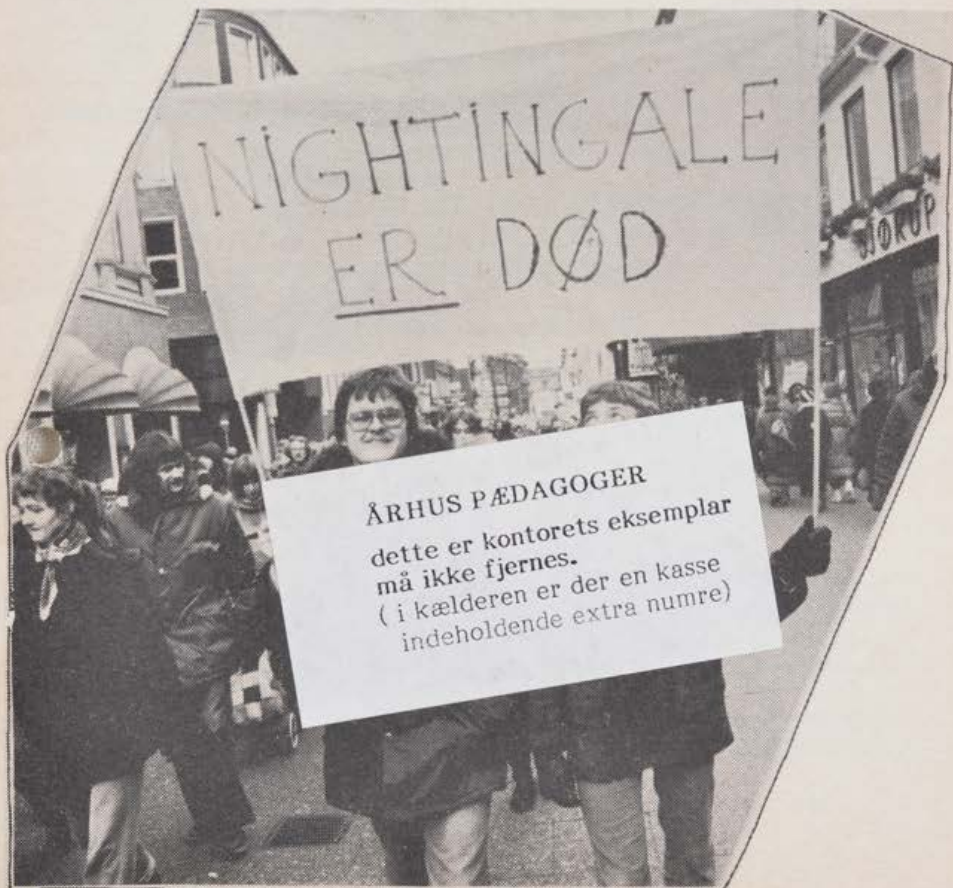 NIGHTINGALE
ER DØD
ÅRHUS PÆDAGOGER
dette er kontorets eksemplar
må ikke fjernes.
( i kælderen er der en kasse
indeholdende extra numre)